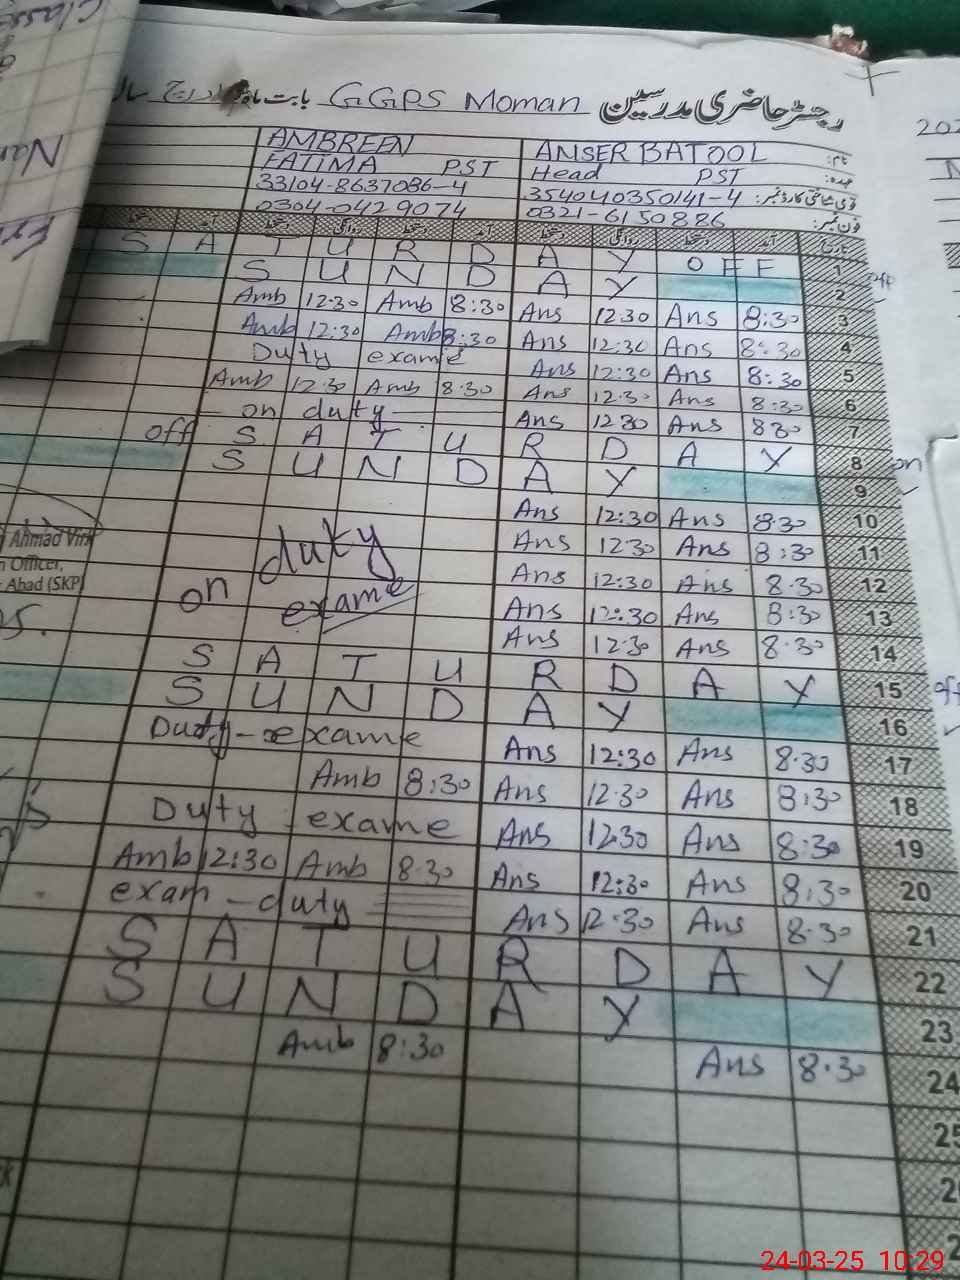 رجسٹر حاضری مدرسین GGPS Moman بابت ماہ مارچ سال
نام: ANSER BATOOL AMBREEN
عہدہ: Head PST FATIMA PST
قومی شناختی کارڈ نمبر: 354040350141-4 33104-8637086-4
فون نمبر: 0321-6150886 0304-0429074
تاریخ آمد دستخط روانگی دستخط آمد دستخط روانگی دستخط آمد دستخط
1 S A T U R D A Y OFF
2 S U N D A Y
3 Amb 12:30 Amb 8:30 Ans 12:30 Ans 8:30
4 Amb 12:30 Amb 8:30 Ans 12:30 Ans 8:30
5 Duty exame Ans 12:30 Ans 8:30
6 Amb 12:30 Amb 8:30 Ans 12:30 Ans 8:30
7 on duty Ans 12 30 Ans 8 30
8 off S A T U R D A Y
9 S U N D A Y
10 Ans 12:30 Ans 8:30
11 Ans 12:30 Ans 8:30
12 on duty exame Ans 12:30 Ans 8:30
13 Ans 12:30 Ans 8:30
14 Ans 12:30 Ans 8:30
15 S A T U R D A Y
16 S U N D A Y
17 Duty-exame Ans 12:30 Ans 8:30
18 Amb 8:30 Ans 12:30 Ans 8:30
19 Duty exame Ans 12:30 Ans 8:30
20 Amb 12:30 Amb 8:30 Ans 12:30 Ans 8:30
21 exam-duty Ans 12:30 Ans 8:30
22 S A T U R D A Y
23 S U N D A Y
24 Amb 8:30 Ans 8:30
25
Ahmad Virk
Officer,
Abad (SKP)
off
on
24-03-25 10:29